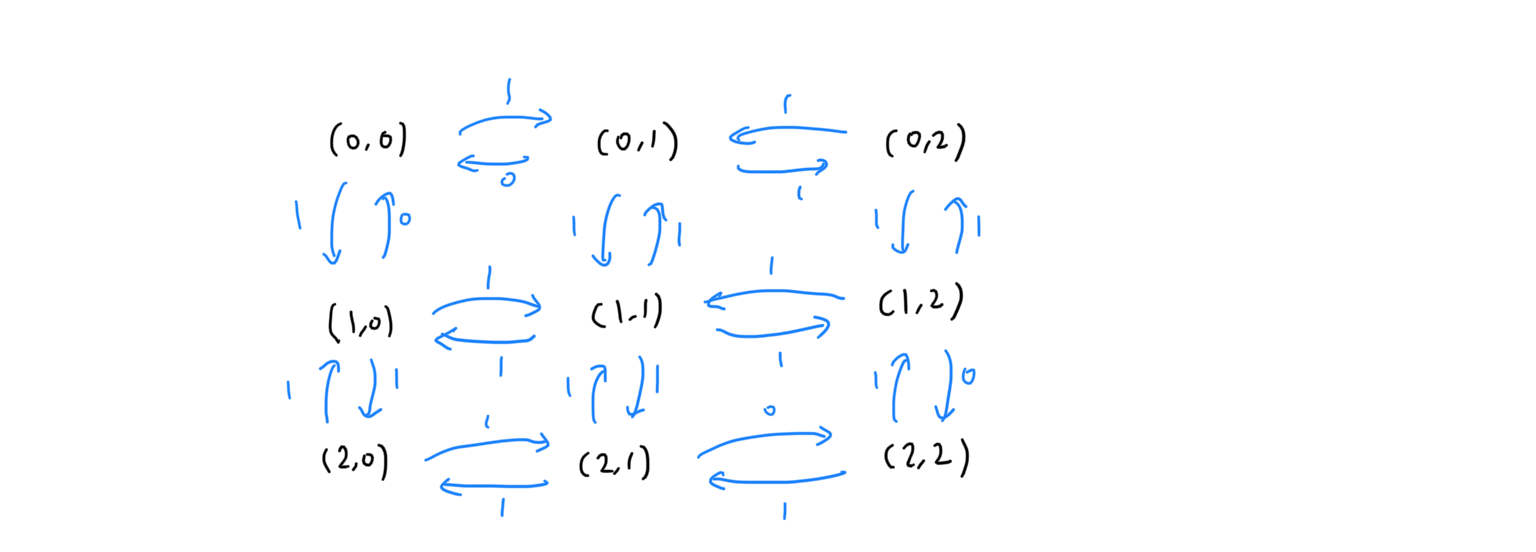 1 1
(0,0) (0,1) (0,2)
0 1
1 0 1 1 1 1
1 1
(1,0) (1,1) (1,2)
1 1
1 1 1 1 1 0
1 0
(2,0) (2,1) (2,2)
1 1